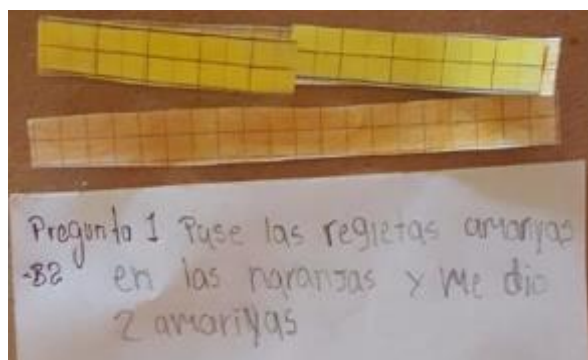 Pregunta 1 Puse las regletas amariyas
-B2 en las naranjas y me dio
2 amariyas